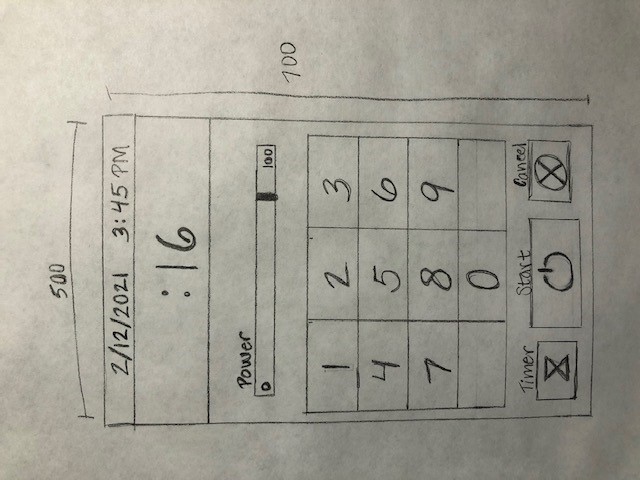 500
700
2/12/2021 3:45 PM
:16
Power
0 100
1 2 3
4 5 6
7 8 9
0
Timer Start Cancel